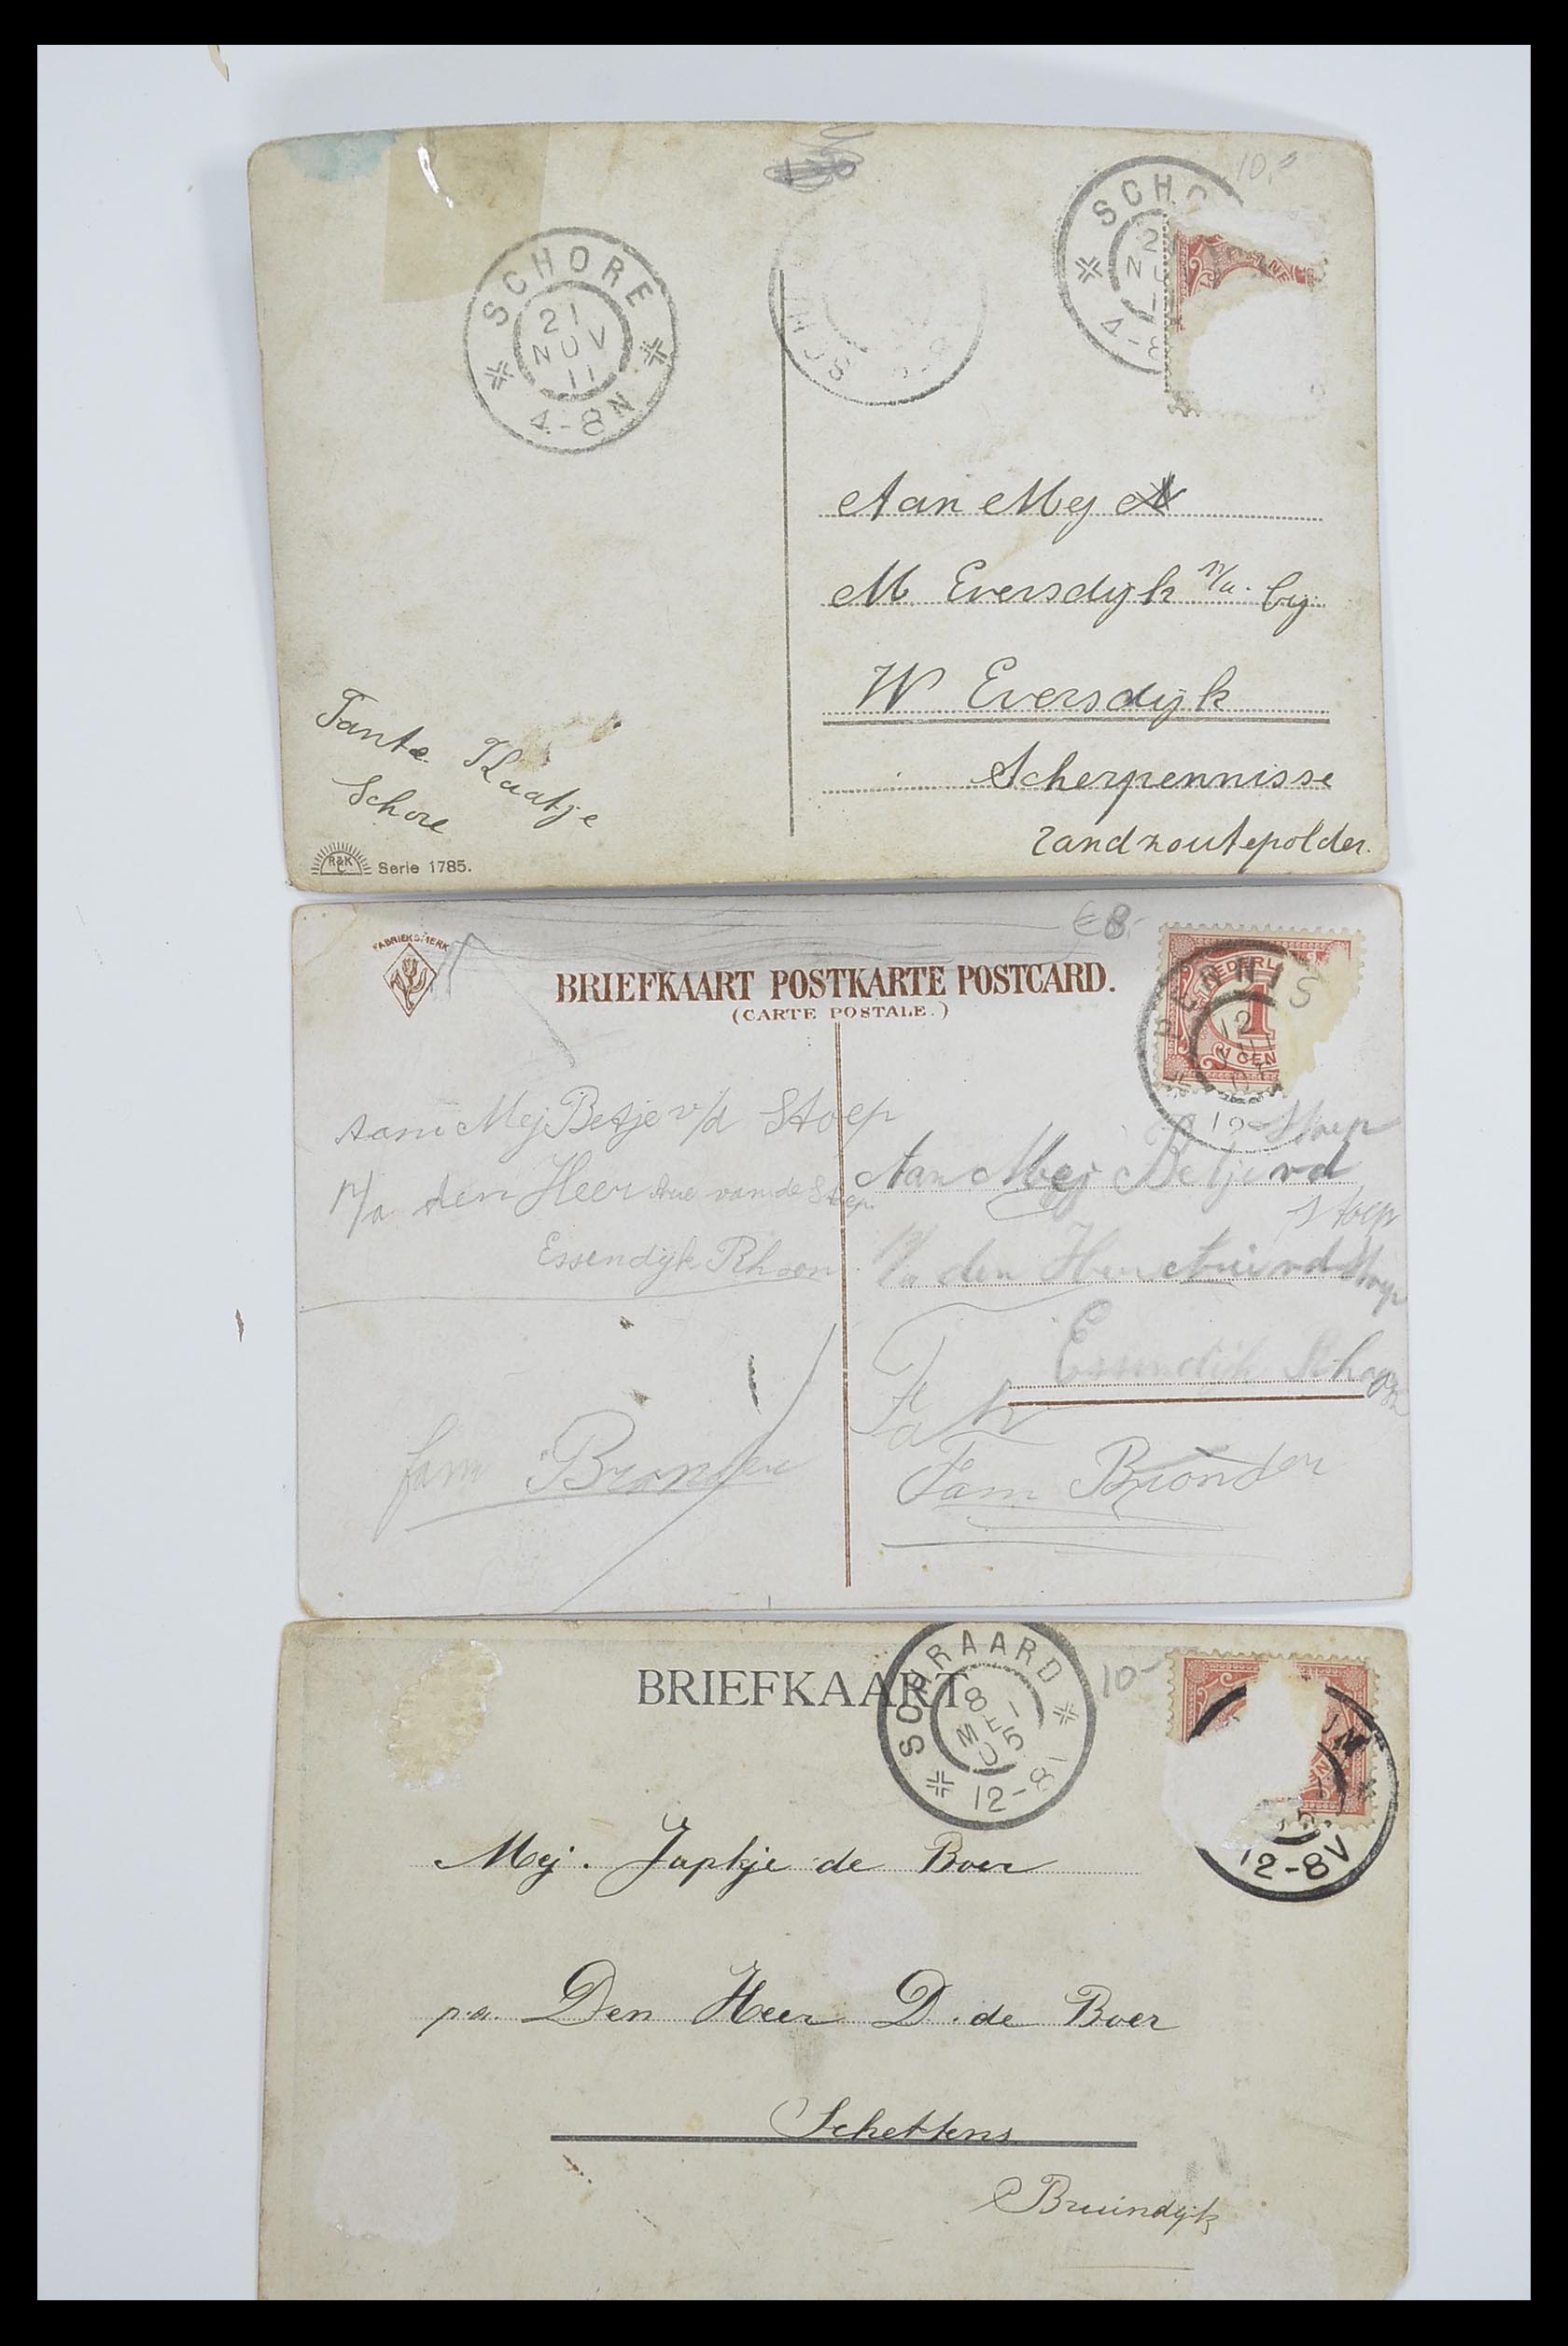 10,-
SCHORE
21
NOV
11
4-8N
SCHO
2
NO
1
4-8
Aan Mej
M Eversdijk p/a. bij
W Eversdijk
Scherpennisse
Zandzoutepolder.
Tante Kaatje
Schore
R&K
L
Serie 1785.
€8,-
FABRIEKSMERK
BRIEFKAART POSTKARTE POSTCARD.
(CARTE POSTALE.)
NEDERL
1
1 CEN
PERNIS
12
Aan Mej Betje v/d Stoep
p/a den Heer Arie van de Stoep
Essendijk Rhoon
fam Bronder
Stoep
Aan Mej Betje vd
Stoep
p/a den Heer Arie vd Stoep
Essendijk Rhoon
Fam Bronder
BRIEFKAART
SCHRAARD
8
MEI
05
12-8
10-
UM
12-8V
Mej. Japkje de Boer
p.a. Den Heer D. de Boer
Schettens
Bruindijk